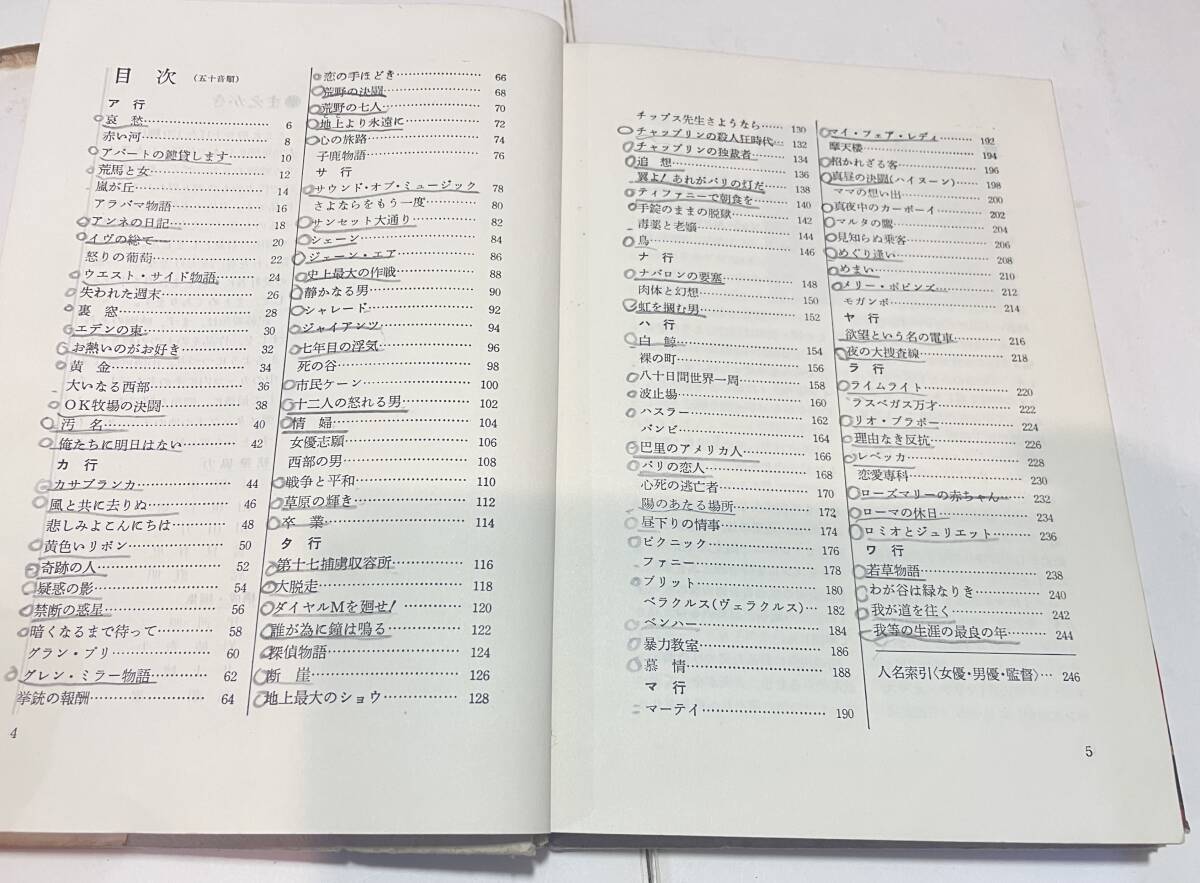 目次（五十音順）
ア行
哀愁 6
赤い河 8
アパートの鍵貸します 10
荒馬と女 12
嵐が丘 14
アラバマ物語 16
アンネの日記 18
イヴの総て 20
怒りの葡萄 22
ウエスト・サイド物語 24
失われた週末 26
裏窓 28
エデンの東 30
お熱いのがお好き 32
黄金 34
大いなる西部 36
OK牧場の決闘 38
汚名 40
俺たちに明日はない 42
カ行
カサブランカ 44
風と共に去りぬ 46
悲しみよこんにちは 48
黄色いリボン 50
奇跡の人 52
疑惑の影 54
禁断の惑星 56
暗くなるまで待って 58
グラン・プリ 60
グレン・ミラー物語 62
挙銃の報酬 64
4
恋の手ほどき 66
荒野の決闘 68
荒野の七人 70
地上より永遠に 72
心の旅路 74
子鹿物語 76
サ行
サウンド・オブ・ミュージック 78
さよならをもう一度 80
サンセット大通り 82
シェーン 84
ジェーン・エア 86
史上最大の作戦 88
静かなる男 90
シャレード 92
ジャイアンツ 94
七年目の浮気 96
死の谷 98
市民ケーン 100
十二人の怒れる男 102
情婦 104
女優志願 106
西部の男 108
戦争と平和 110
草原の輝き 112
卒業 114
タ行
第十七捕虜収容所 116
大脱走 118
ダイヤルMを廻せ！ 120
誰が為に鐘は鳴る 122
探偵物語 124
断崖 126
地上最大のショウ 128
チップス先生さようなら 130
チャップリンの殺人狂時代 132
チャップリンの独裁者 134
追想 136
翼よ！あれがパリの灯だ 138
ティファニーで朝食を 140
手錠のままの脱獄 142
毒薬と老嬢 144
鳥 146
ナ行
ナバロンの要塞 148
肉体と幻想 150
虹を摑む男 152
ハ行
白鯨 154
裸の町 156
八十日間世界一周 158
波止場 160
ハスラー 162
バンビ 164
巴里のアメリカ人 166
パリの恋人 168
心死の逃亡者 170
陽のあたる場所 172
昼下りの情事 174
ピクニック 176
ファニー 178
ブリット 180
ベラクルス（ヴェラクルス） 182
ベンハー 184
暴力教室 186
慕情 188
マ行
マーテイ 190
マイ・フェア・レディ 192
摩天楼 194
招かれざる客 196
真昼の決闘（ハイヌーン） 198
ママの想い出 200
真夜中のカーボーイ 202
マルタの鷹 204
見知らぬ乗客 206
めぐり逢い 208
めまい 210
メリー・ポピンズ 212
モガンボ 214
ヤ行
欲望という名の電車 216
夜の大捜査線 218
ラ行
ライムライト 220
ラスベガス万才 222
リオ・ブラボー 224
理由なき反抗 226
レベッカ 228
恋愛専科 230
ローズマリーの赤ちゃん 232
ローマの休日 234
ロミオとジュリエット 236
ワ行
若草物語 238
わが谷は緑なりき 240
我が道を往く 242
我等の生涯の最良の年 244
人名索引〈女優・男優・監督〉 246
5